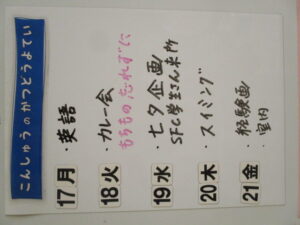 こんしゅうのかつどうよてい
17月・英語
18火・カレー会
もちもの忘れずに
19水・七夕企画
SFC学生さん来所
20木・スイミング
21金・経験画
・室内